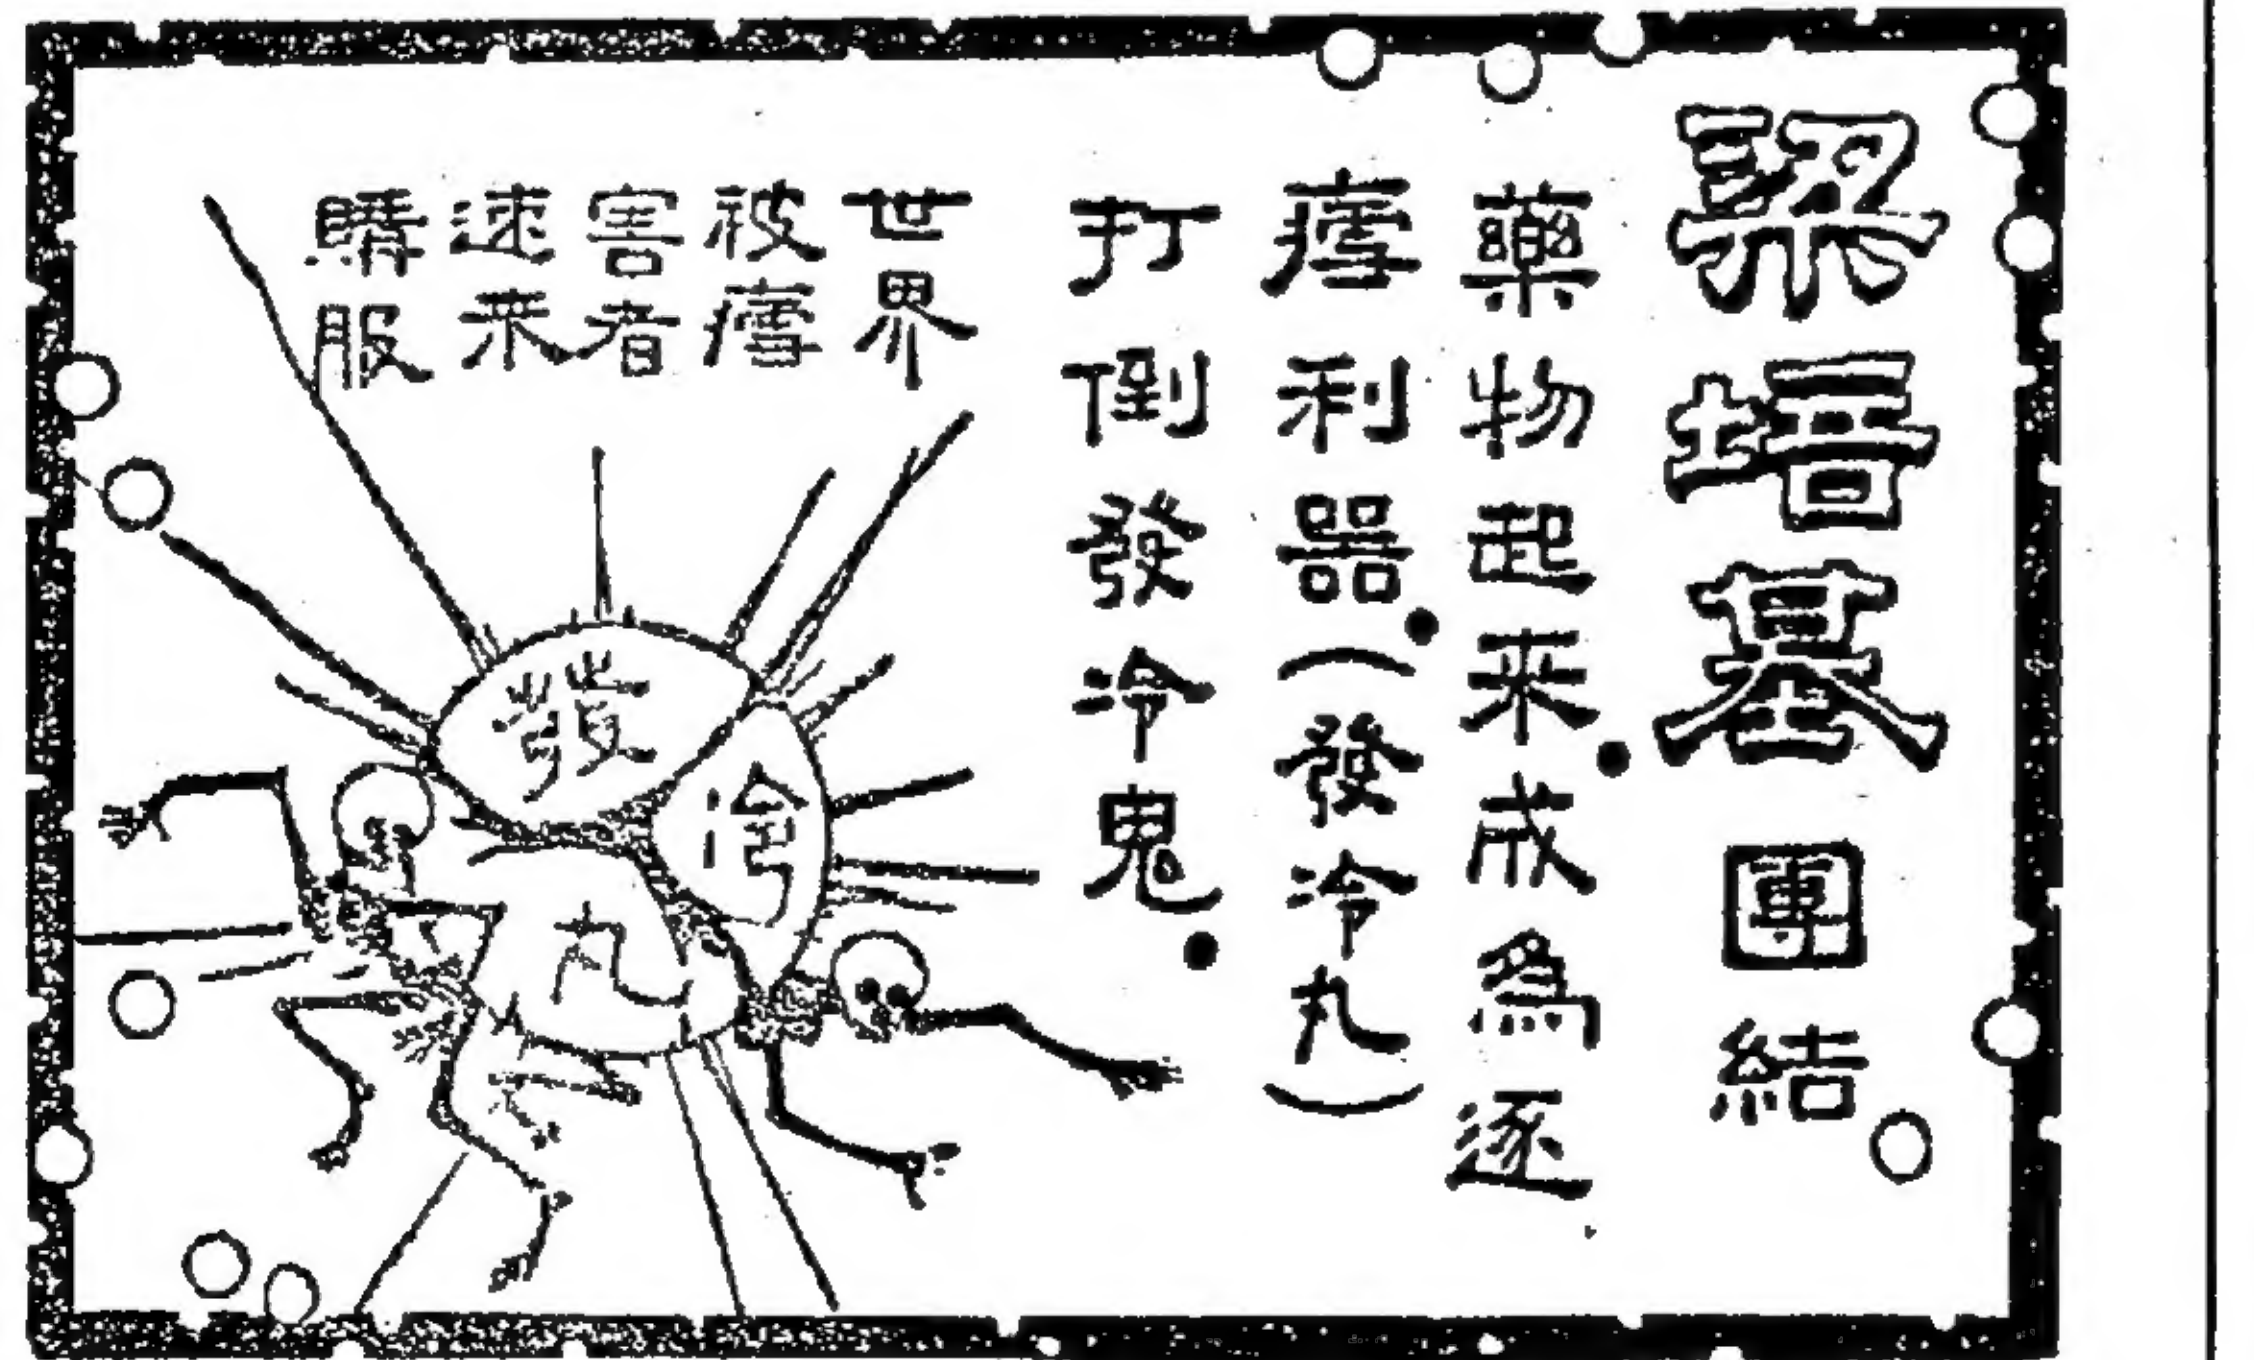 梁培基團結
藥物起来•成為逐
瘧利器•(發冷丸)
打倒發冷鬼•
世界
被瘧
害者
速来
購服
發
冷
丸